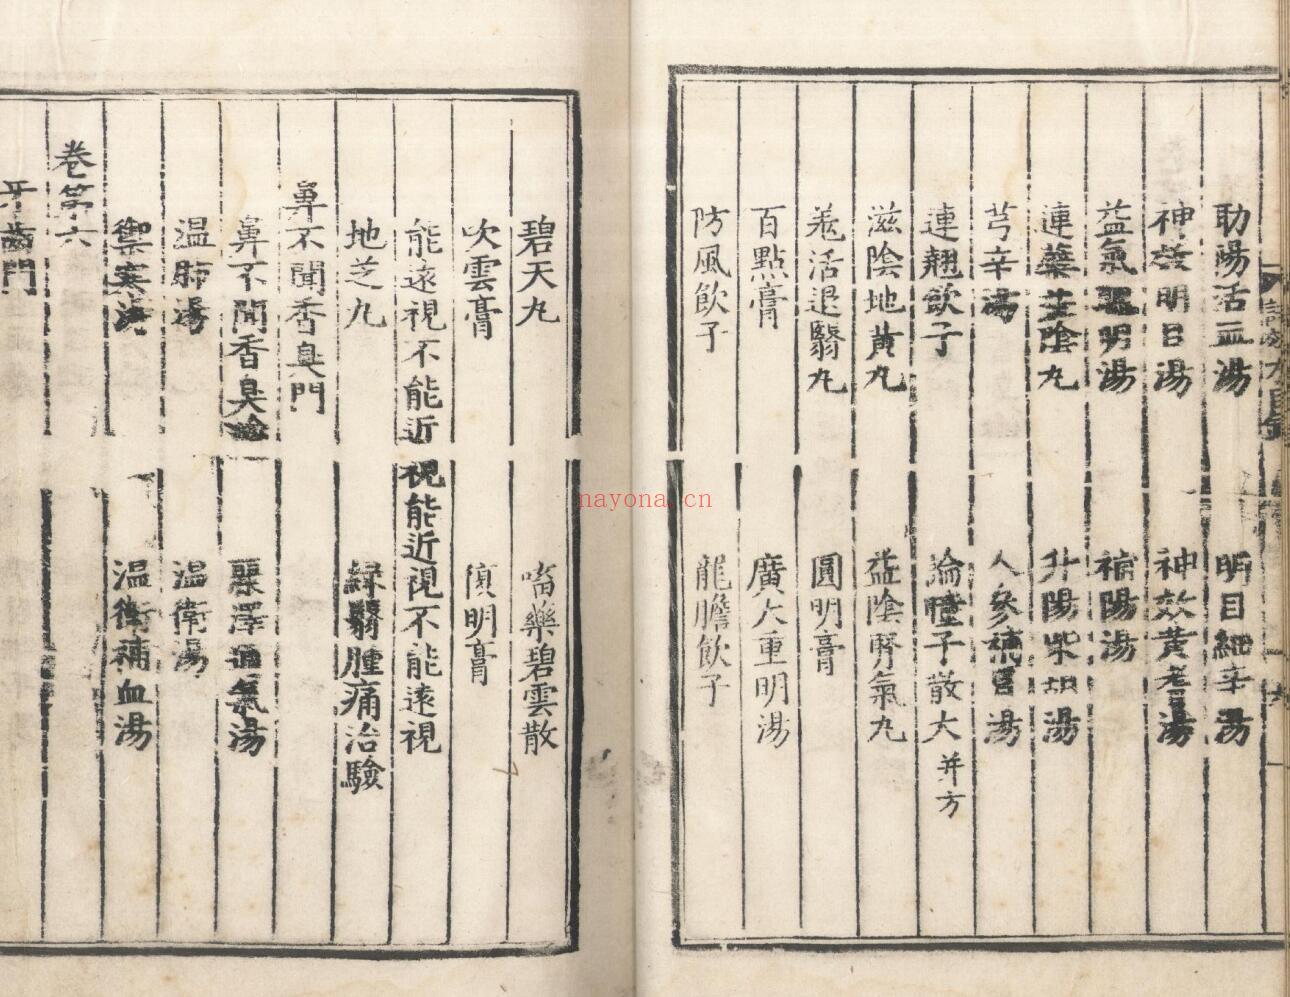 助陽活血湯　明目細辛湯
神效明目湯　神效黃耆湯
益氣聰明湯　補陽湯
連蘗益陰丸　升陽柴胡湯
芎辛湯　人參補胃湯
連翹飲子　論瞳子散大并方
滋陰地黃丸　益陰腎氣丸
羗活退翳丸　圓明膏
百點膏　廣大重明湯
防風飲子　龍膽飲子
碧天丸　㗜藥碧雲散
吹雲膏　復明膏
能遠視不能近視能近視不能遠視
地芝丸　綠翳腫痛治驗
鼻不聞香臭門
鼻不聞香臭論　麗澤通氣湯
温肺湯　温衛湯
禦寒湯　温衛補血湯
卷第六
牙齒門
nayona.cn